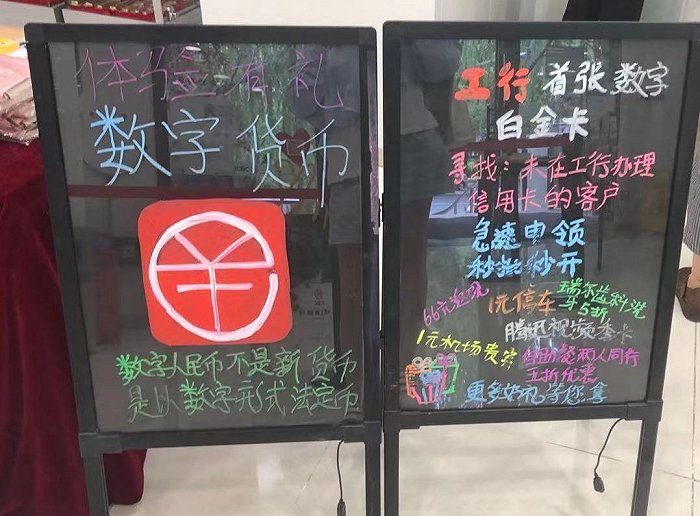 体验有礼
数字货币
数字人民币不是新货币
是以数字形式法定币
工行首张数字
白金卡
寻找：未在工行办理
信用卡的客户
急速申领
秒批秒开
66元
1元停车
瑞尔齿科洗
牙5折
腾讯视频季卡
1元机场贵宾
两人同行
五折优惠
更多好礼等您拿